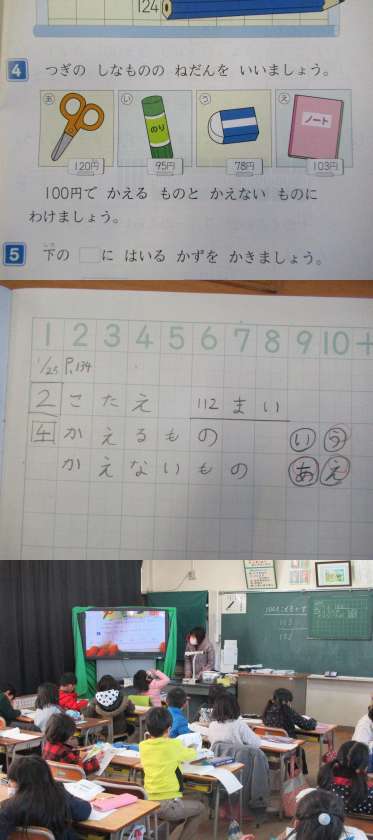 124
4 つぎの しなものの ねだんを いいましょう。
あ い う え
のり
ノート
120円 95円 78円 103円
100円で かえる ものと かえない ものに
わけましょう。
5 下の □に はいる かずを かきましょう。
1 2 3 4 5 6 7 8 9 10
1/25 P.134
2 こたえ 112まい
4 かえるもの い う
かえないもの あ え